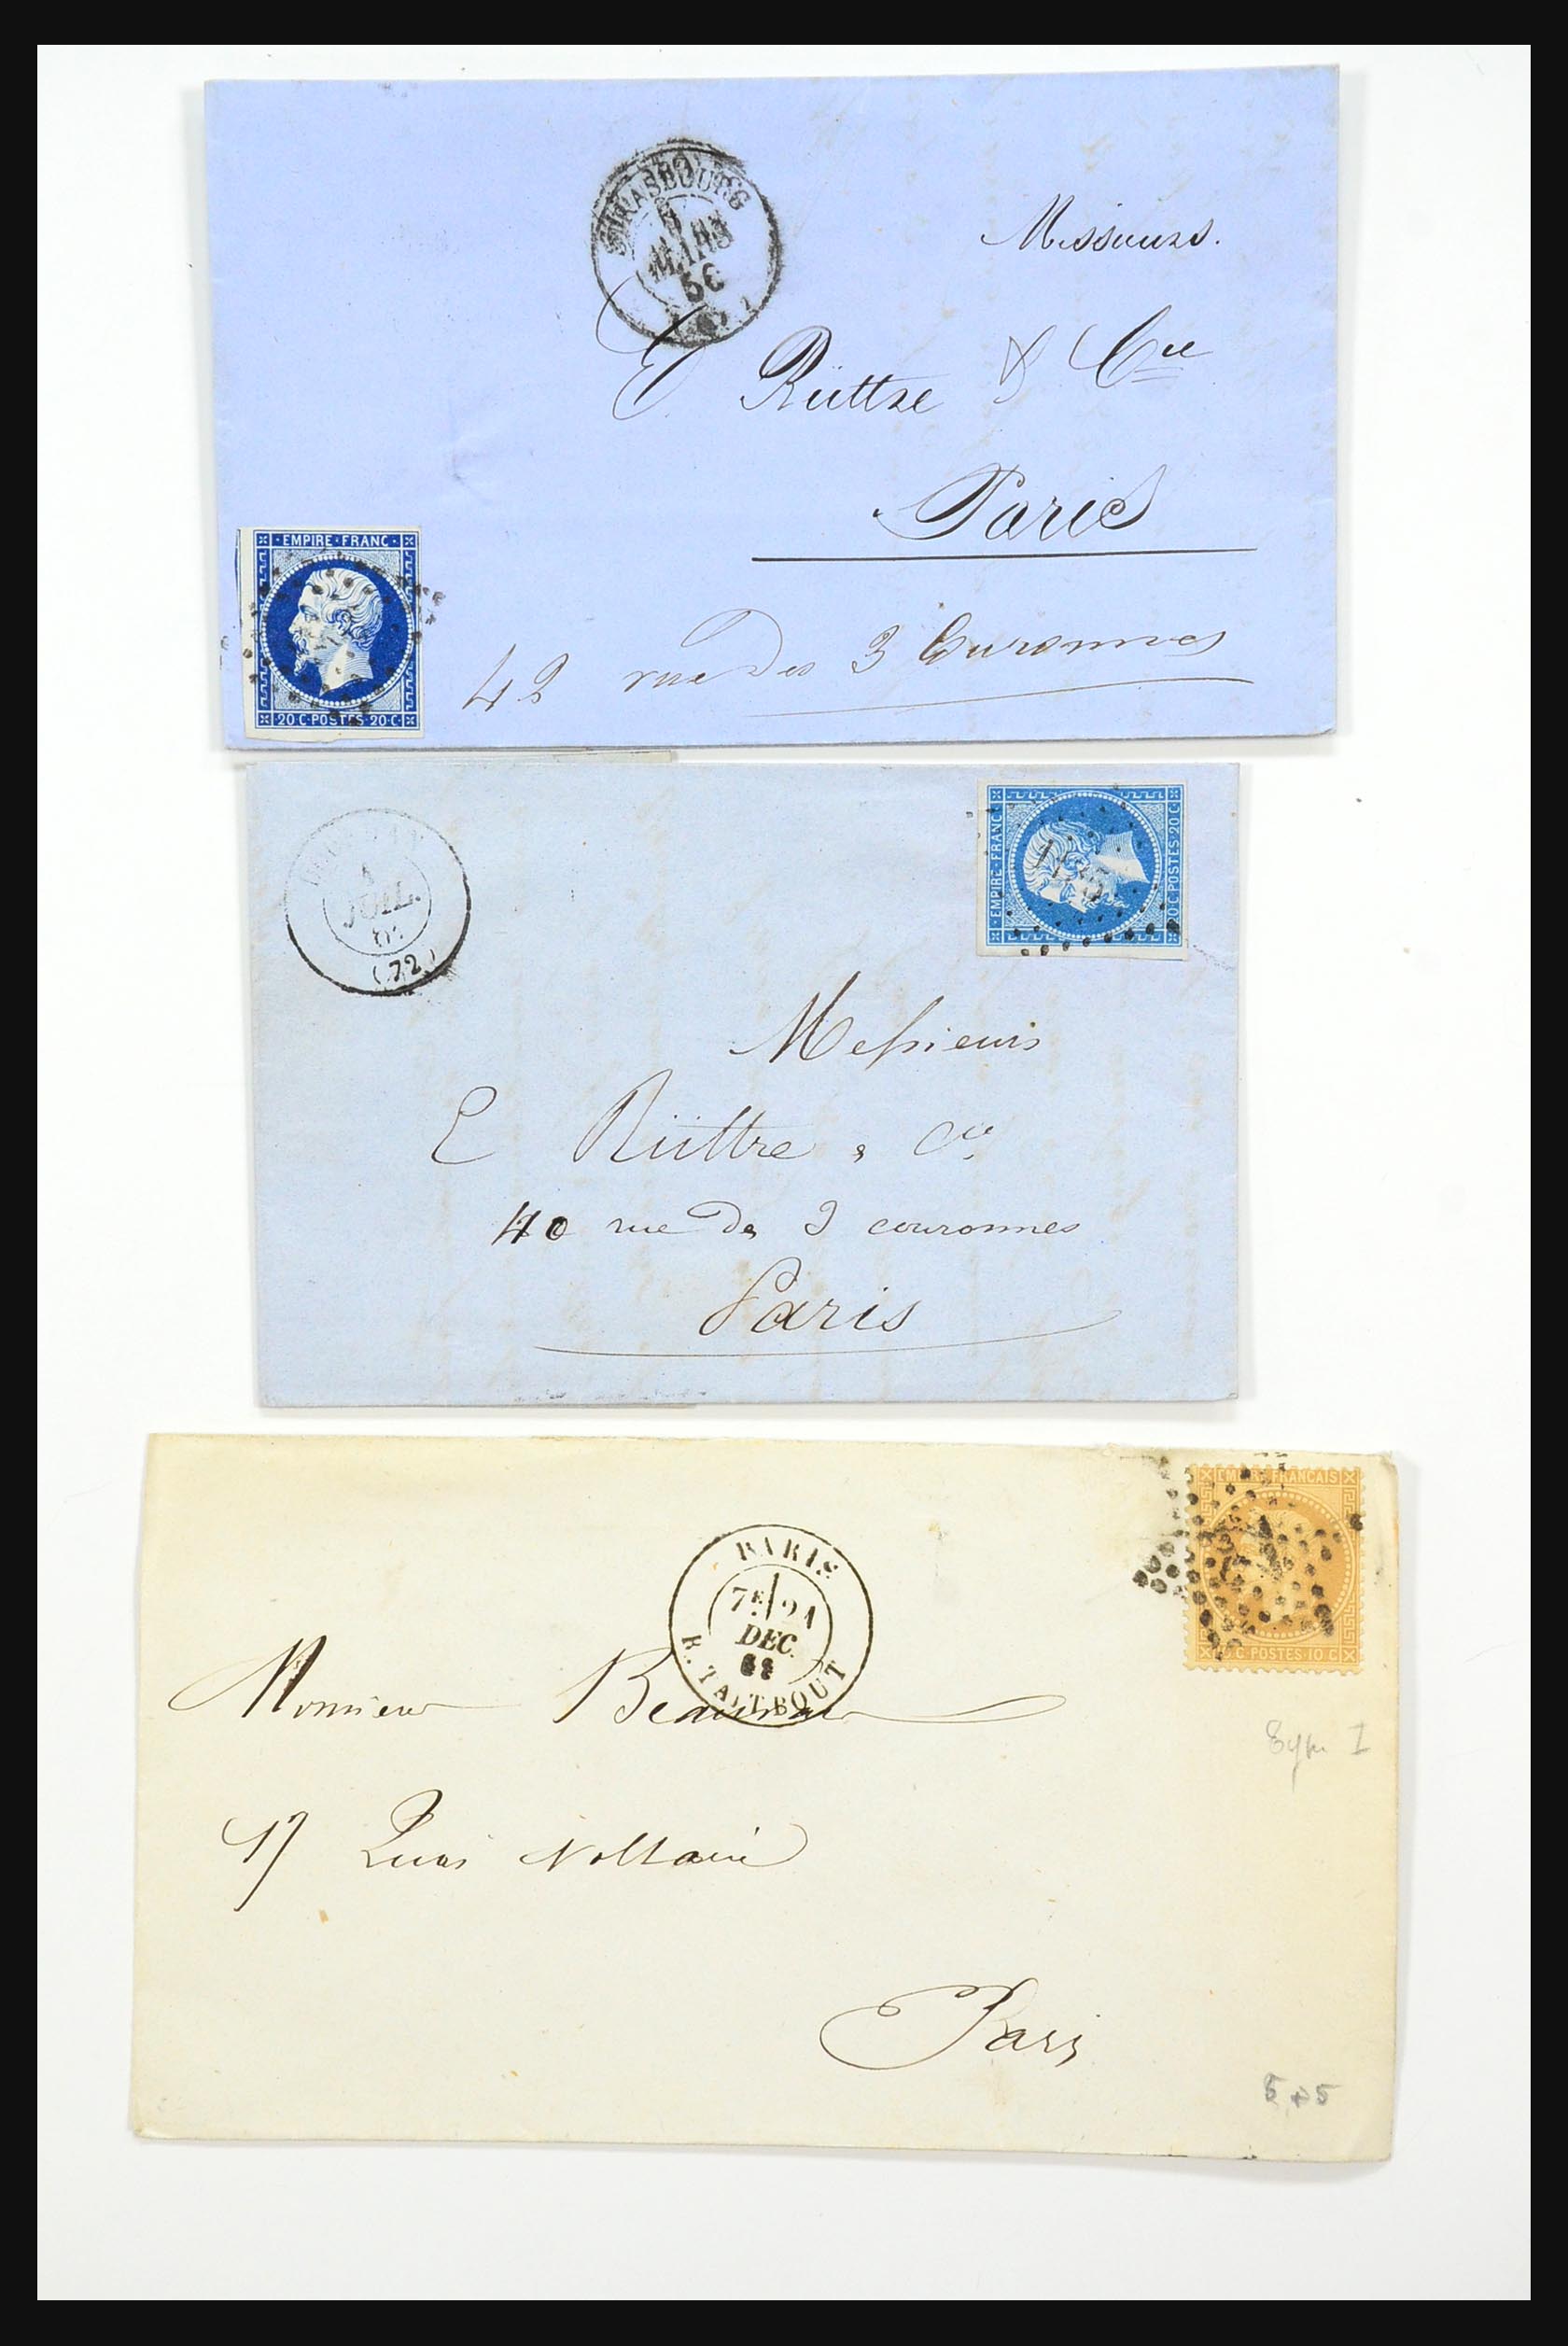 STRASBOURG
MARS
56
Messieurs.
E. Rüttre & Cie
Paris
EMPIRE · FRANC ·
20 C · POSTES · 20 C ·
42 rue des 3 Couronnes
JUIL.
(72)
EMPIRE · FRANC
20 C · POSTES · 20 C ·
Messieurs
E Rüttre & Cie
40 rue des 3 couronnes
Paris
EMPIRE FRANÇAIS
C POSTES 10 C
PARIS
7E 21
DEC.
68
R. TAITBOUT
Monsieur
Type I
17 Quai Voltaire
Paris
5 + 5